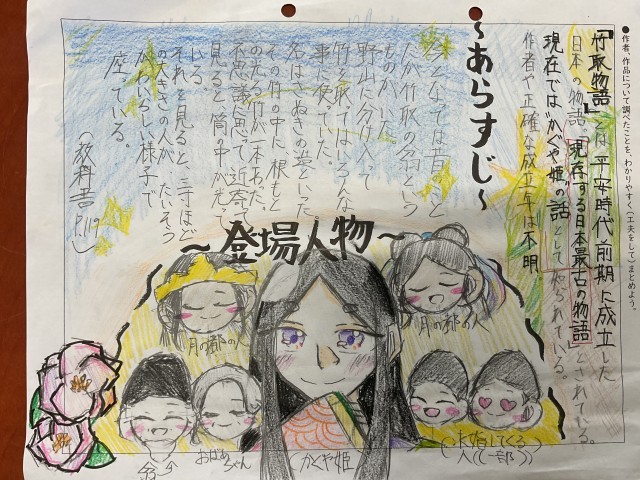 ●作者、作品について調べたことを、わかりやすく(工夫をして)まとめよう。
「竹取物語」とは平安時代前期に成立した
日本の物語。「現存する日本最古の物語」とされている。
現在では"かぐや姫"の話として知られている。
作者や正確な成立年は不明
〜あらすじ〜
今となっては昔のこと
だが竹取の翁という
ものがいた。
野山に分け入って
竹を取ってはいろんな
事に使っていた。
名はさぬきの造といった
その竹の中に根もと
の光る竹が一本あった。
不思議に思って近寄って
見ると筒の中が光って
いる。
それを見ると三寸ほど
の大きさの人がたいそう
かわいらしい様子で
座っている。
(教科書P.119)
〜登場人物〜
月の都の人
月の都の人
おばあちゃん
かぐや姫
(求婚してくる
人(一部))